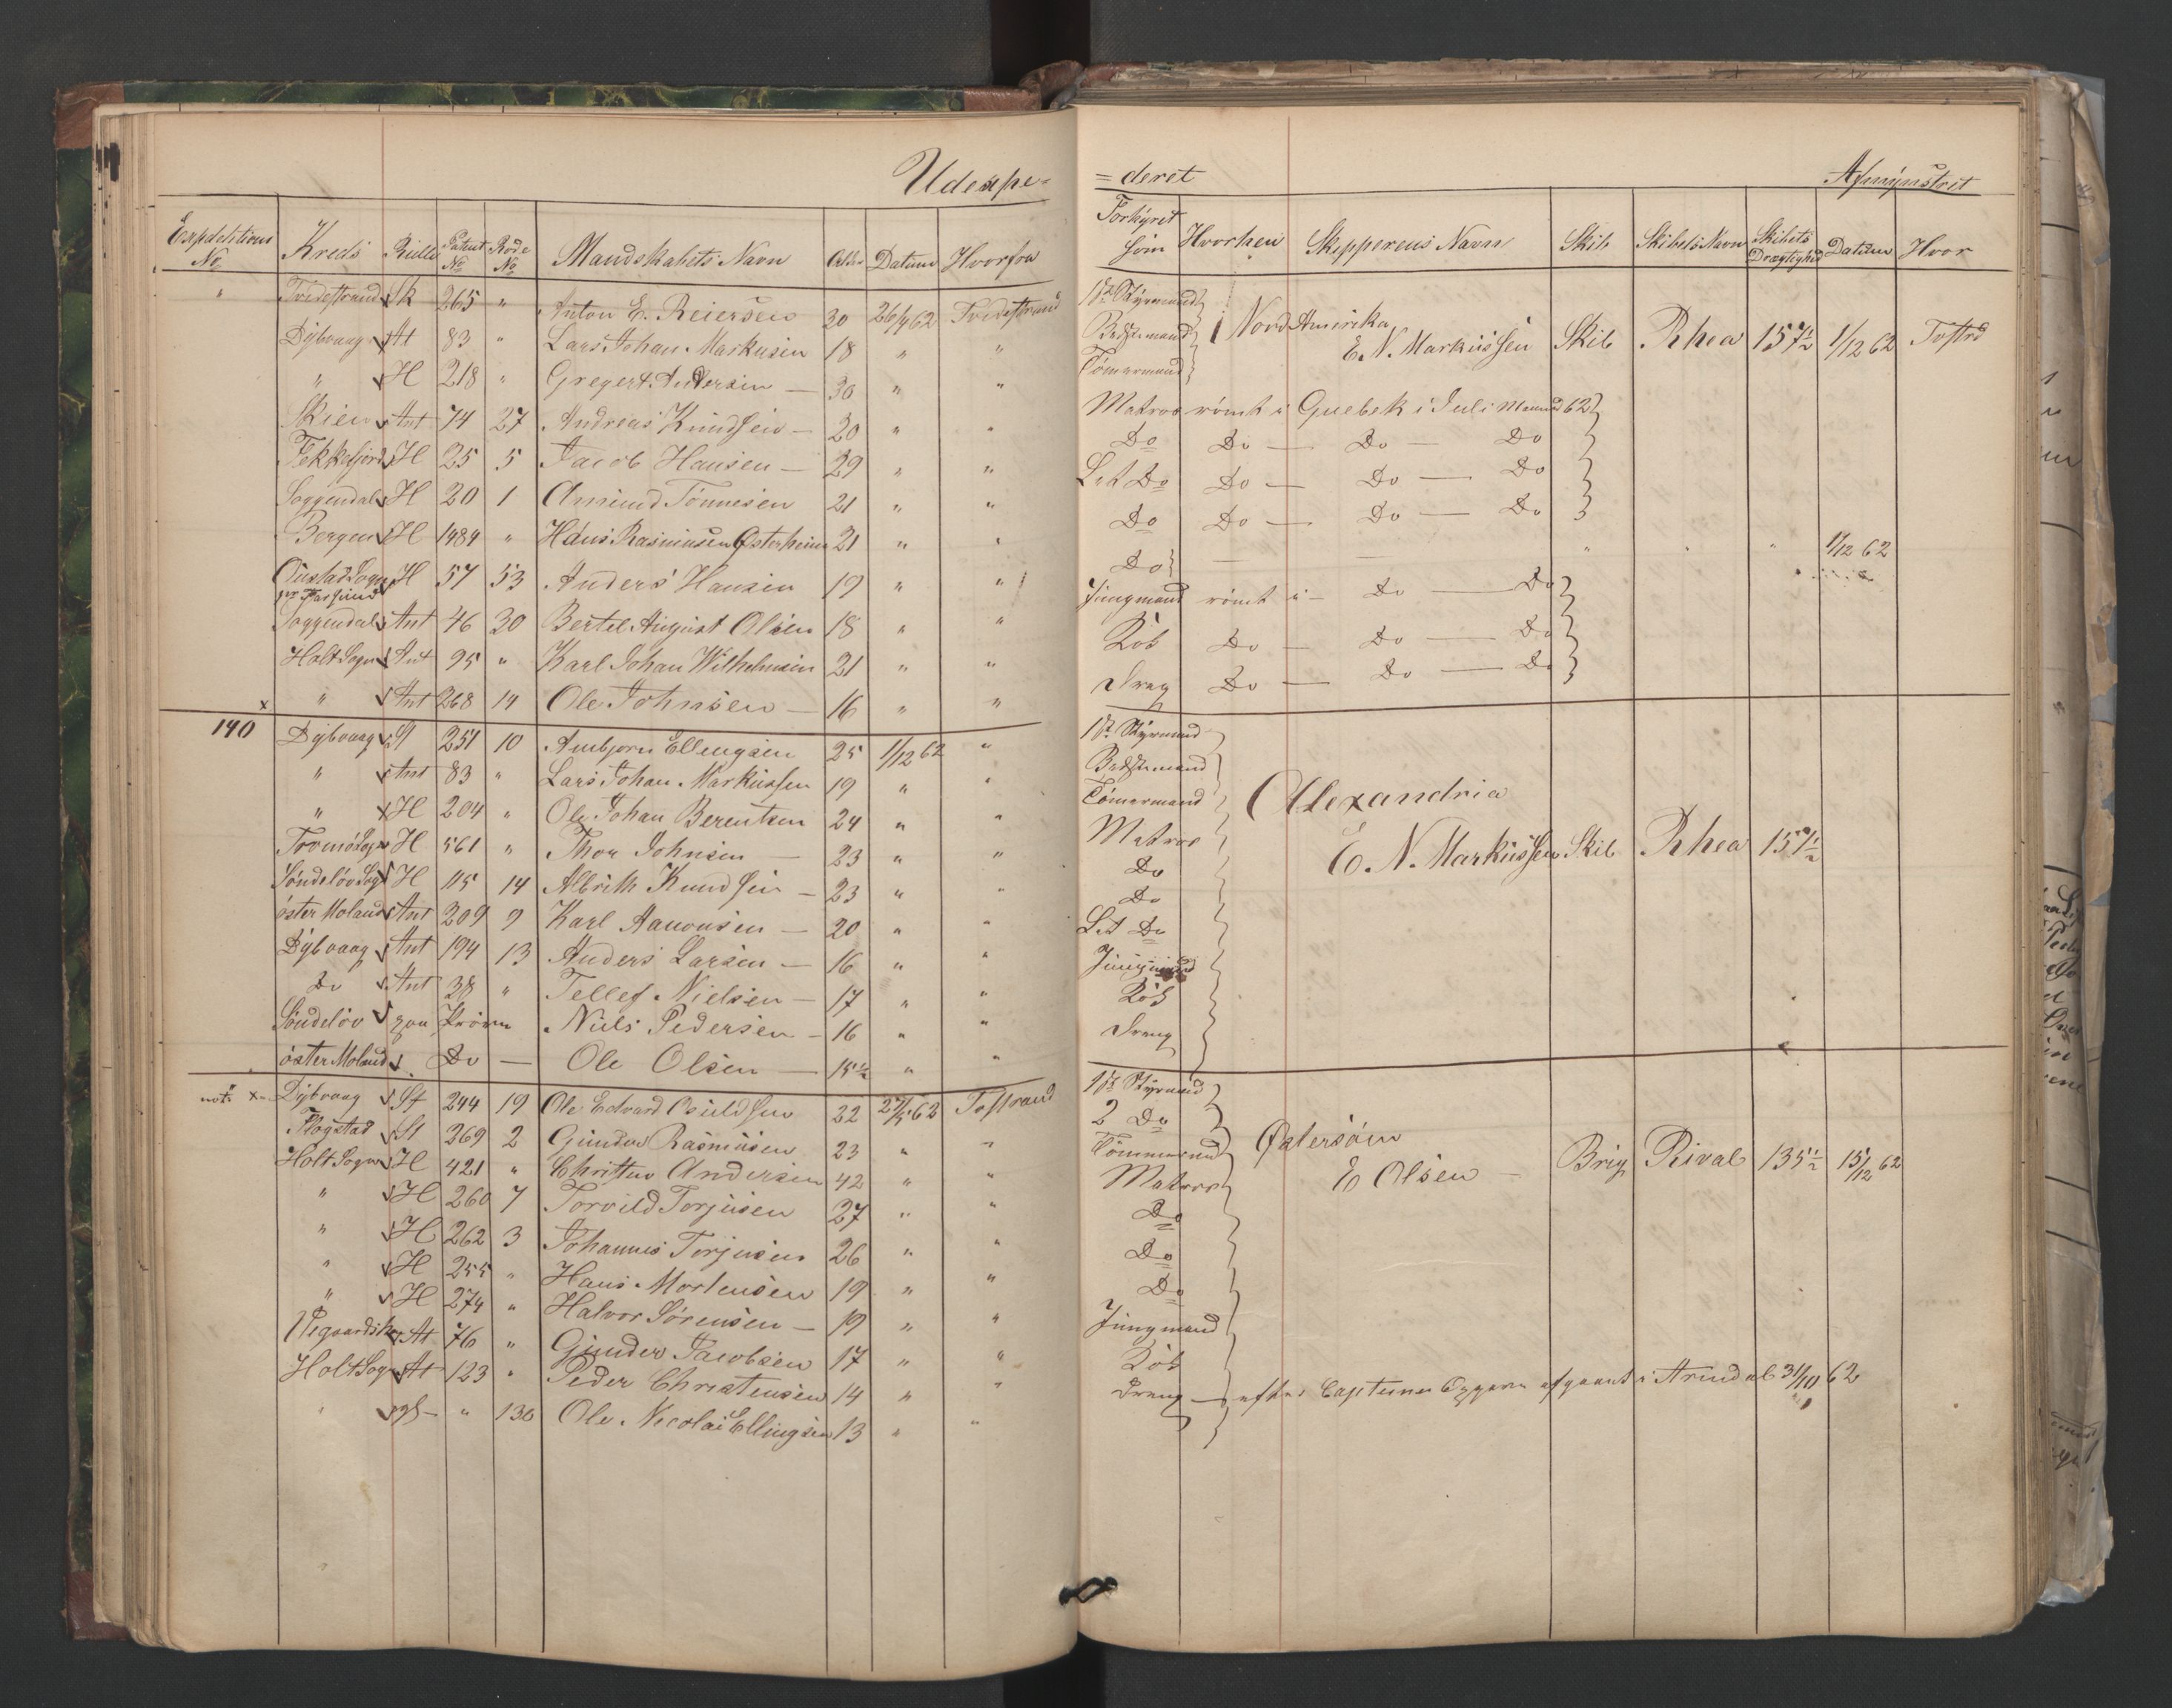 Udexpe=
Expeditions No Kreds Rulle Patent No Rode No Mandskabets Navn Alder Datum Hvorfra
" Tvedestrand Sk 265 " Anton E. Reiersen 30 26/4 62 Tvedestrand
Dybvaag At 83 " Lars Johan Markusen 18 " "
" H 218 " Gregert Andersen — 36 " "
Skien Ant 74 27 Andreas Knudsen — 20 " "
Flekkefjord H 25 5 Jacob Hansen — 29 " "
Soggendal H 20 1 Amund Tønnesen 21 " "
Bergen H 1484 " Hans Rasmusen Østerheim 21 " "
H 57 53 Anders Hansen 19 " "
Soggendal Ant 46 30 Bertel August Olsen 18 " "
Holt Sogn Ant 95 " Karl Johan Wilhelmsen 21 " "
x " Ant 268 14 Ole Johnsen — 16 " "
140 Dybvaag St 251 10 Anbjorn Ellingsen 25 1/12 62 "
" Ant 83 " Lars Johan Markussen 19 " "
" H 204 " Ole Johan Berentsen 24 " "
Tromö Sogn H 561 " Thor Johnsen — 23 " "
Söndelöv Sogn H 115 14 Albrikt Knudsen — 23 " "
öster Moland Ant 209 9 Karl Aanonsen — 20 " "
Dybvaag Ant 194 13 Anders Larsen — 16 " "
Do Ant 38 " Tellef Nielsen — 17 " "
Söndelöv paa Pröven Niels Pedersen — 16 " "
öster Moland Do — Ole Olsen — 15½ " "
x Dybvaag St 244 19 Ole Edvard Osuldsen 22 62 Tvstrand
Flogstad St 269 2 Gunder Rasmusen 23 " "
Holt Sogn H 421 " Christen Andersen 42 " "
" H 260 7 Torvild Torjusen 27 " "
" H 262 3 Johannes Torjusen 26 " "
" H 255 " Hans Mortensen 19 " "
" H 274 " Halvor Sörensen — 19 " "
Vegaardsh At 76 " Gunder Jacobsen 17 " "
Holt Sogn At 123 " Peder Christensen 14 " "
" " 130 Ole Necolai Ellingsen 13 " "
= deret Afmynstret
Forhyret som Hvorhen Skipperens Navn Skib Skibets Navn Skibets Drægtighed Datum Hvor
1ste Styrmand
Bedstemand Nord Amerika
E. N. Markussen Skib Rhea 157½ 1/12 62 Tvstrd
Tömermand
Matros römt i Quebek i Juli Maaned 62
Do Do — Do — Do
Let Do Do — Do — Do
Do Do — Do — Do
Do — — " " " 1/12 62
Jungmand römt i — Do — Do
Kok Do — Do — Do
Dreng Do — Do — Do
1ste Styrmand
Bedstemand
Tömermand Alexandria
Matros
E. N. Markussen Skib Rhea 157½
Do
Do
Let Do
Jungmand
Kok
Dreng
1ste Styrmand
2 Do
Tömmermand Østersöen
Matros E Olsen — Brig Rival 135½ 15/12 62
Do
Do
Do
Jungmand
Kok
Dreng — efter Capteinens Opgave afgaaet i Arendal 31/10 62